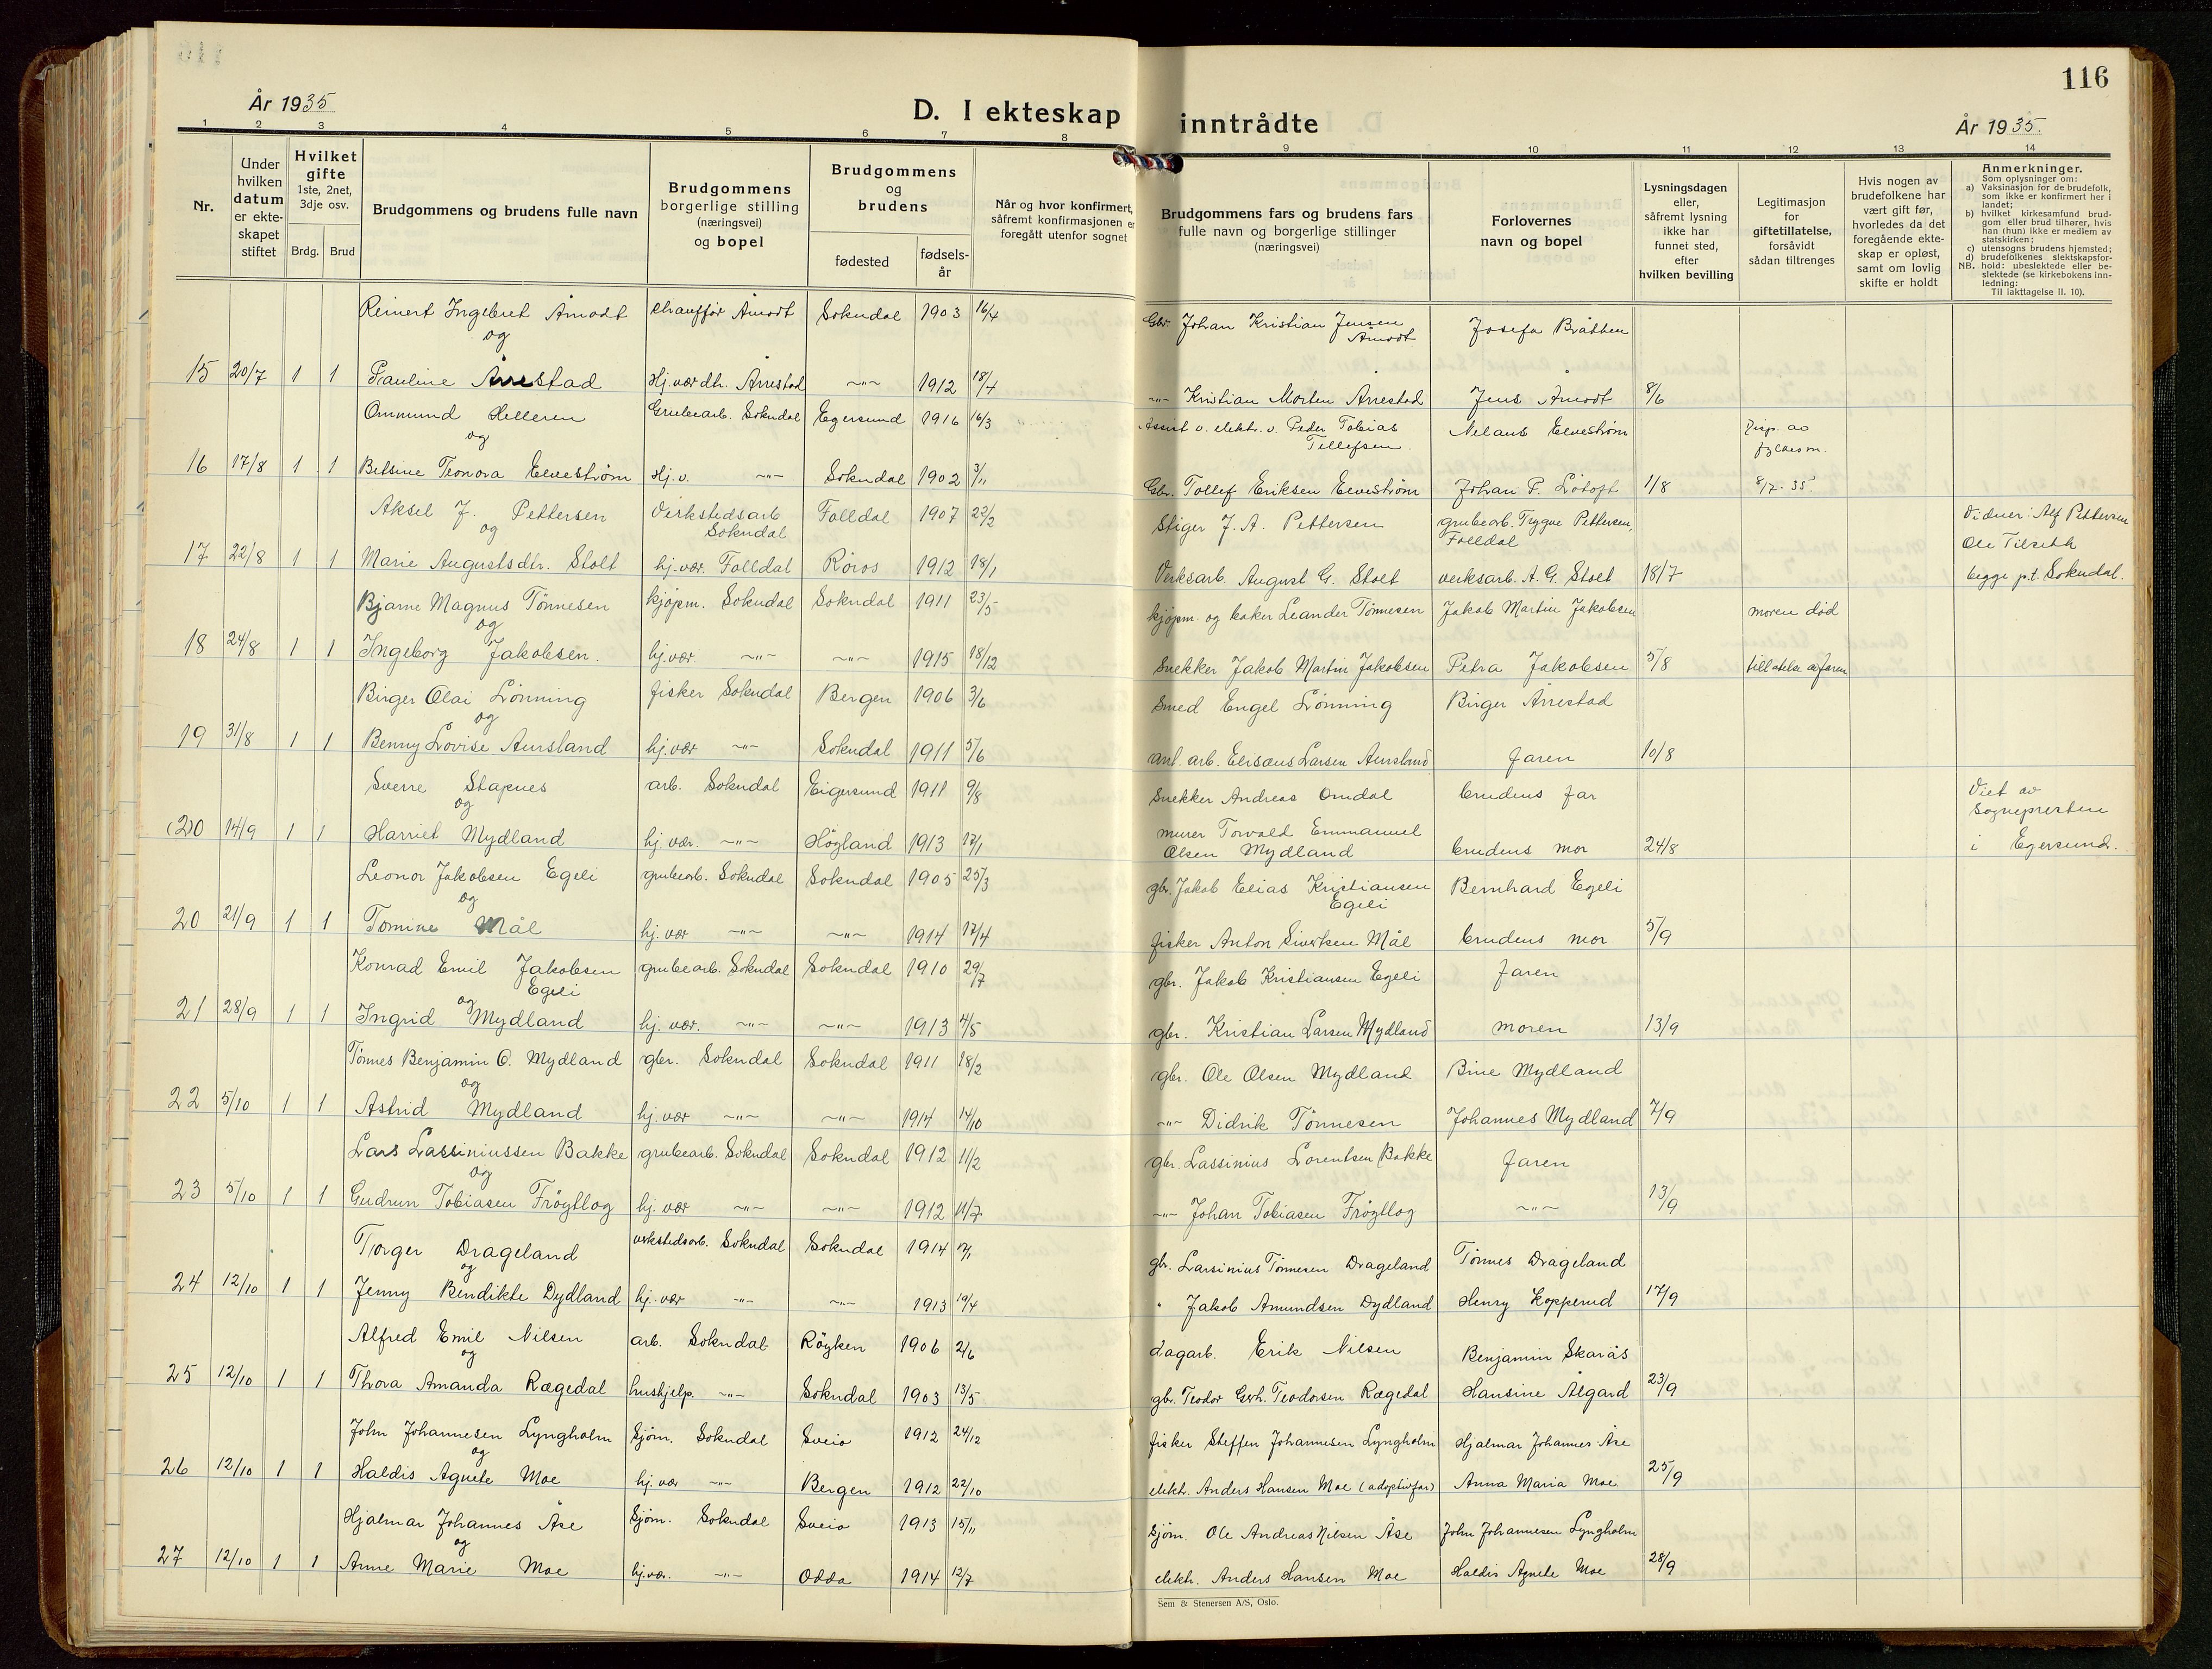 116
År 1935
D. I ekteskap inntrådte
År 1935.
1 2 3 4 5 6 7 8 9 10 11 12 13 14
Nr.
Under
hvilken
datum
er ekte-
skapet
stiftet
Hvilket
gifte
1ste, 2net,
3dje osv.
Brdg. Brud
Brudgommens og brudens fulle navn
Brudgommens
borgerlige stilling
(næringsvei)
og bopel
Brudgommens
og
brudens
fødested
fødsels-
år
Når og hvor konfirmert,
såfremt konfirmasjonen er
foregått utenfor sognet
Brudgommens fars og brudens fars
fulle navn og borgerlige stillinger
(næringsvei)
Forlovernes
navn og bopel
Lysningsdagen
eller,
såfremt lysning
ikke har
funnet sted,
efter
hvilken bevilling
Legitimasjon
for
giftetillatelse,
forsåvidt
sådan tiltrenges
Hvis nogen av
brudefolkene har
vært gift før,
hvorledes da det
foregående ekte-
skap er opløst,
samt om lovlig
skifte er holdt
Anmerkninger.
Som oplysninger om:
a) Vaksinasjon for de brudefolk,
som ikke er konfirmert her i
landet;
b) hvilket kirkesamfund brud-
gom eller brud tilhører, hvis
han (hun) ikke er medlem av
statskirken;
c) utensogns brudens hjemsted;
d) brudefolkenes slektskapsfor-
NB. hold: ubeslektede eller be-
slektede (se kirkebokens inn-
ledning:
Til iakttagelse II. 10).
Reinert Ingebret Åmodt chauffør Åmodt Sokndal 1903 16/4 Gbr. Johan Kristian Jensen Åmodt Josefa Bråtten
og
15 20/7 1 1 Pauline Årrestad Hj.vær dh. Årrestad -"- 1912 18/4 -"- Kristian Morten Årrestad Jens Åmodt 8/6
Ommund Helleren Grubearb. Sokndal Egersund 1916 16/3 Assist v. elektr. v. Peder Tobias Tellefsen. Nilaus Elvestrøm Disp. av fylkesm.
og
16 17/8 1 1 Betsine Teonora Elvestrøm Hj.v. -"- Sokndal 1902 3/11 Gbr. Tollef Eriksen Elvestrøm Johan P. Lötoft 1/8 8/7-35.
Aksel J. Pettersen Verkstedsarb Sokndal Folldal 1907 22/2 Stiger J. A. Pettersen grubearb. Trygve Pettersen, Folldal Vidner: Alf Pettersen
og
Ole Tilseth
17 22/8 1 1 Marie Augustsdtr. Stolt hj.vær. Folldal Röros 1912 18/1 Verksarb. August G. Stolt verksarb. A. G. Stolt 18/7 begge p.t. Sokndal.
Bjarne Magnus Tönnesen kjöpm. Sokndal Sokndal 1911 23/5 kjöpm. og baker Leander Tönnesen Jakob Martin Jakobsen moren död
og
18 24/8 1 1 Ingeborg Jakobsen. hj.vær. -"- -"- 1915 18/12 Snekker Jakob Martin Jakobsen Petra Jakobsen 5/8 tillatelse av faren
Birger Olai Lönning fisker Sokndal Bergen 1906 3/6 Smed Engel Lönning Birger Årrestad
og
19 31/8 1 1 Benny Lovise Aursland hj.vær -"- Sokndal 1911 5/6 anl. arb. Elisæus Larsen Aursland Faren 10/8
Sverre Stapnes arb. Sokndal Eigersund 1911 9/8 Snekker Andreas Omdal brudens far Viet av
og
sognepresten
(2)0 14/9 1 1 Harriet Mydland hj.vær. -"- Högland 1913 17/1 murer Torvald Emmanuel Olsen Mydland brudens mor 24/8 i Egersund.
Leonor Jakobsen Egeli grubearb. Sokndal Sokndal 1905 25/3 gbr. Jakob Elias Kristiansen Egeli Bernhard Egeli
og
20 21/9 1 1 Tomine Mål hj.vær -"- -"- 1914 17/4 fisker Anton Sivertsen Mål brudens mor 5/9
Konrad Emil Jakobsen Egeli grubearb. Sokndal Sokndal 1910 29/7 gbr. Jakob Kristiansen Egeli Faren
og
21 28/9 1 1 Ingrid Mydland hj.vær. -"- -"- 1913 4/5 gbr. Kristian Larsen Mydland moren 13/9
Tönnes Benjamin O. Mydland gbr. Sokndal Sokndal 1911 18/2 gbr. Ole Olsen Mydland Bine Mydland
og
22 5/10 1 1 Astrid Mydland hj.vær -"- -"- 1914 14/10 -"- Didrik Tönnesen Johannes Mydland 7/9
Lars Lassiniussen Bakke grubearb. Sokndal Sokndal 1912 11/2 gbr. Lassinius Lorentsen Bakke Faren
og
23 5/10 1 1 Gudrun Tobiasen Fröytlog hj.vær -"- -"- 1912 11/7 -"- Johan Tobiasen Fröytlog -"- 13/9
Torger Drageland verkstedsarb. Sokndal Sokndal 1914 gbr. Larsinius Tönnesen Drageland Tönnes Drageland
og
24 12/10 1 1 Jenny Bendikte Dydland hj.vær -"- -"- 1913 19/4 " Jakob Amundsen Dydland Henry Kopperud 17/9
Alfred Emil Nilsen arb. Sokndal Röyken 1906 2/6 dagarb. Erik Nilsen Benjamin Skarås
og
25 12/10 1 1 Thora Amanda Rægedal hushjelp. -"- Sokndal 1903 13/5 gbr. Teodor Gerh. Teodorsen Rægedal Hansine Ålgard 23/9
John Johannesen Lyngholm Sjöm. Sokndal Sveio 1912 24/12 fisker Steffen Johannesen Lyngholm Hjalmar Johannes Åse
og
26 12/10 1 1 Haldis Agnete Moe hj.vær -"- Bergen 1912 22/10 elektr. Anders Hansen Moe (adoptivfar) Anna Maria Moe 25/9
Hjalmar Johannes Åse Sjöm. Sokndal Sveio 1913 15/11 Sjöm. Ole Andreas Nilsen Åse John Johannesen Lyngholm
og
27 12/10 1 1 Anne Marie Moe hj.vær. -"- Odda 1914 12/7 elektr. Anders Hansen Moe Haldis Agnete Moe 28/9
Sem & Stenersen A/S, Oslo.